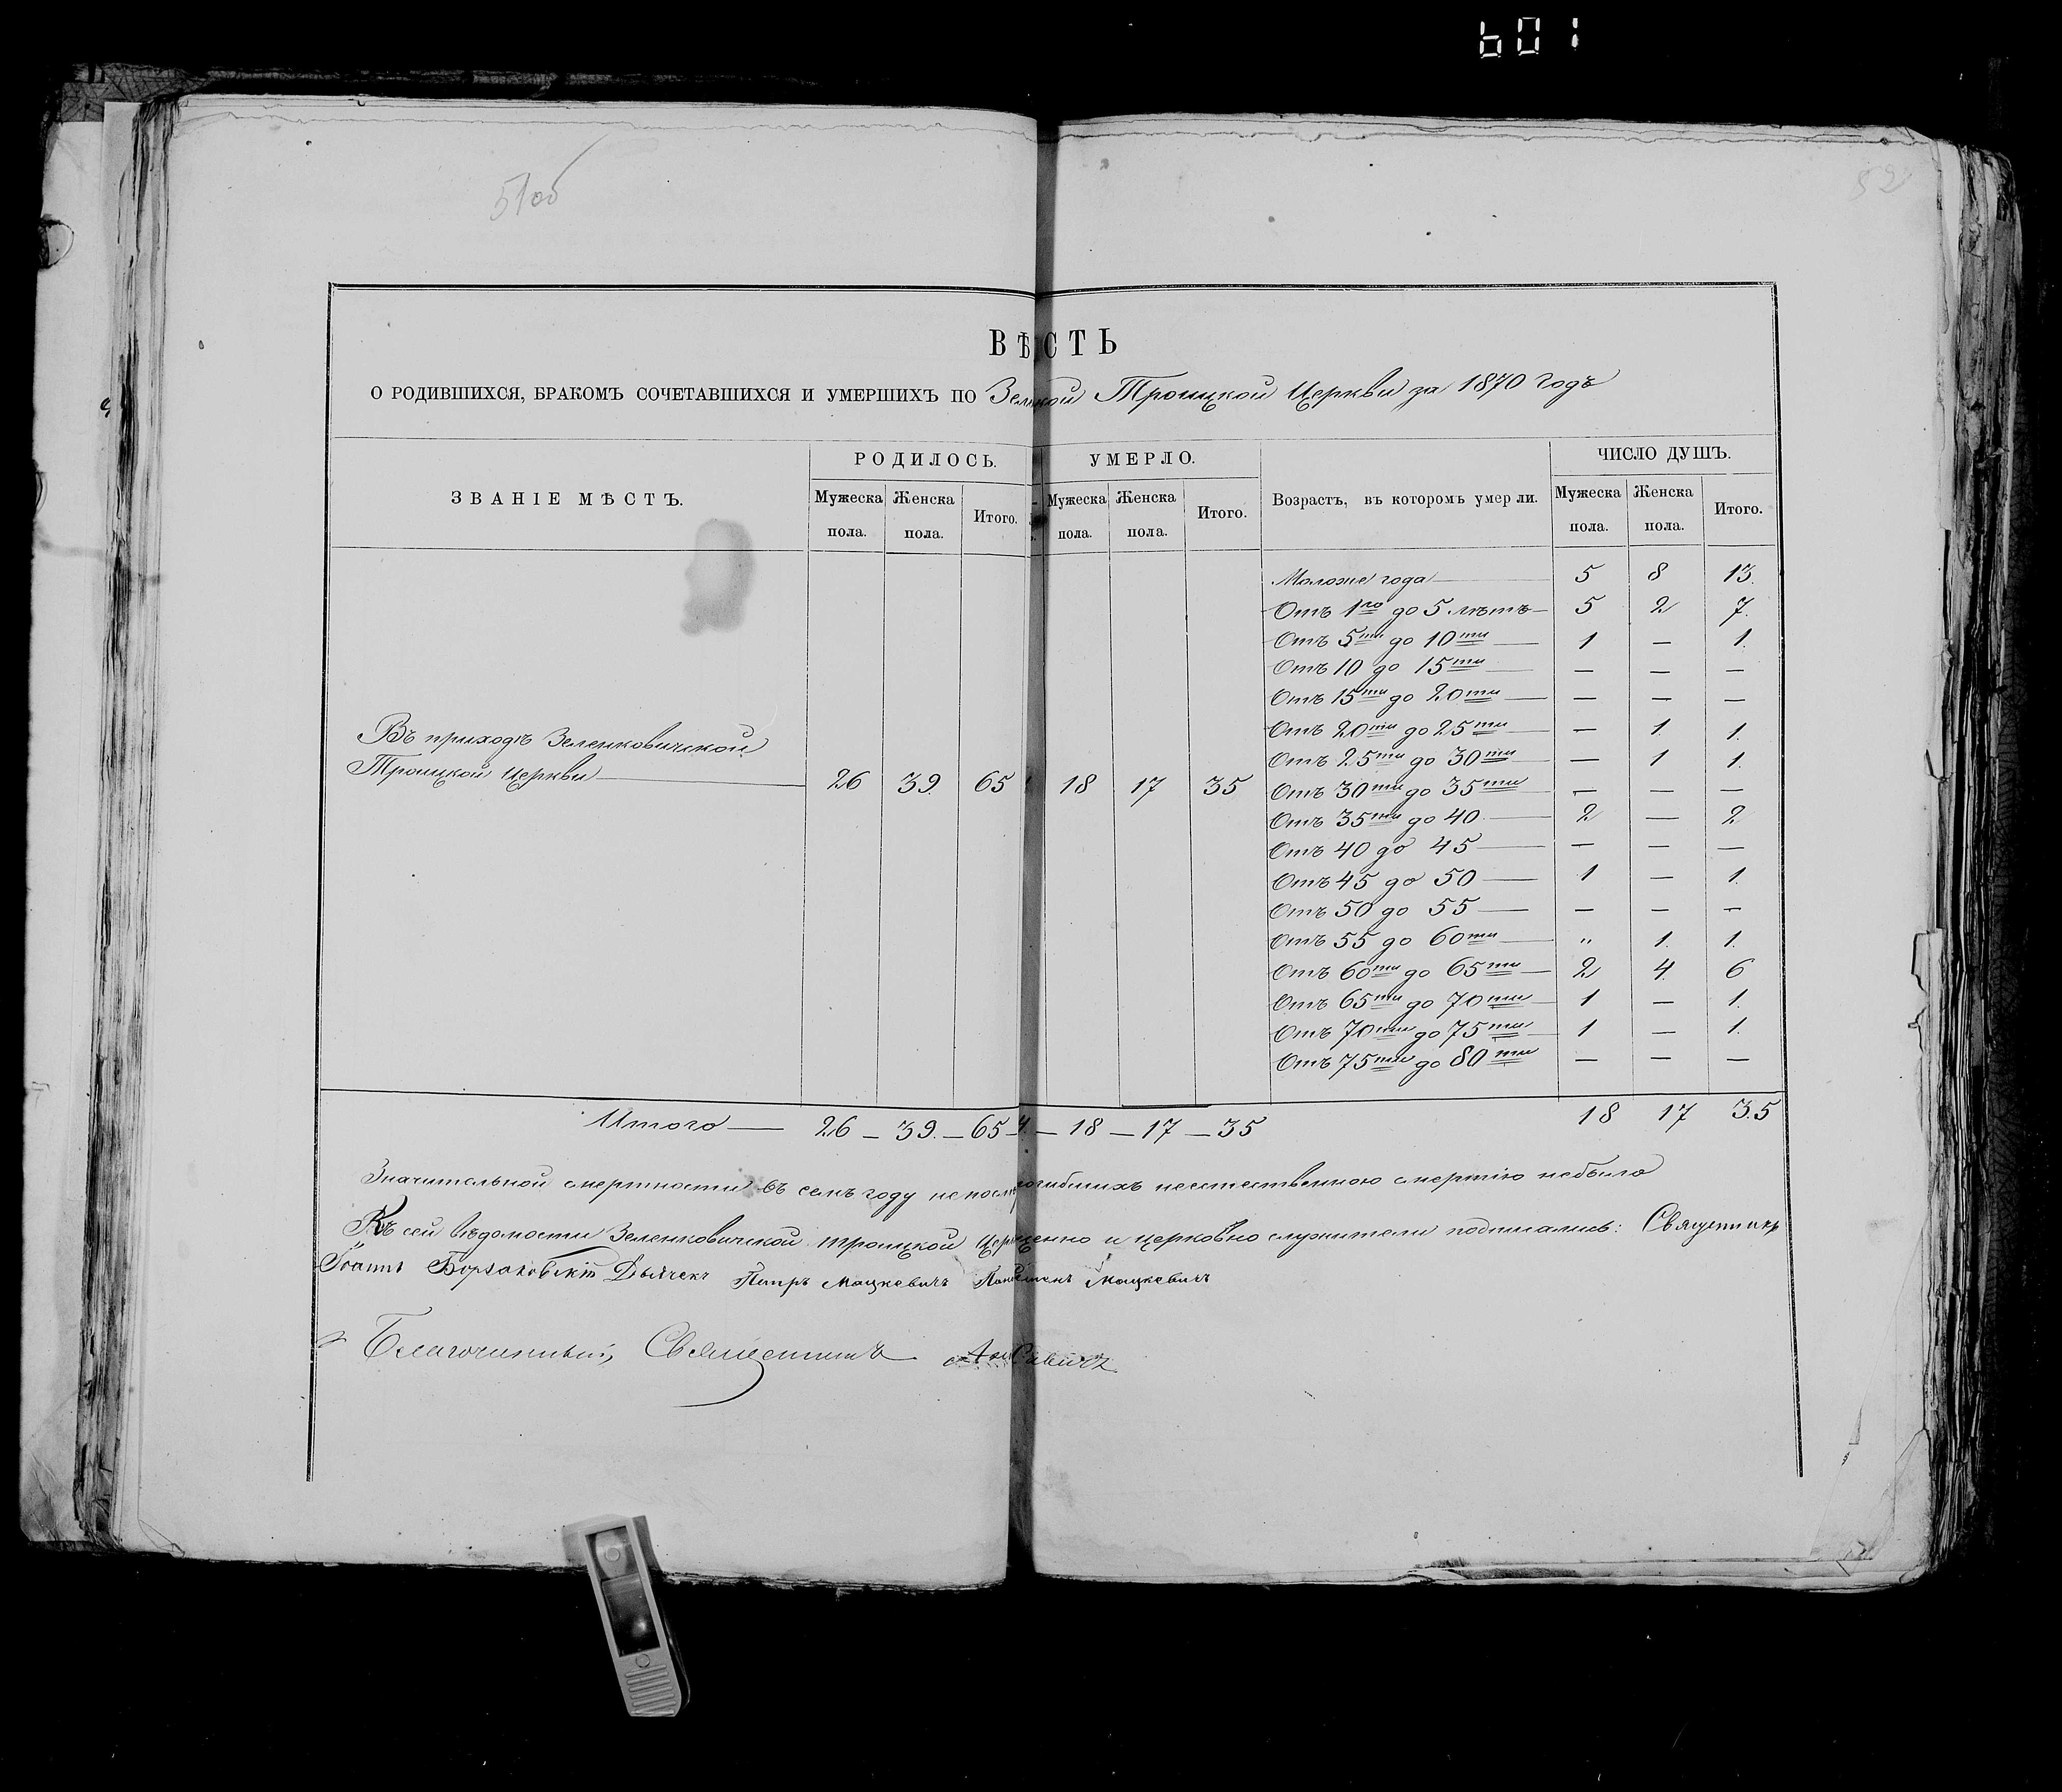 601
51об
52
ВѢСТЬ
О РОДИВШИХСЯ, БРАКОМЪ СОЧЕТАВШИХСЯ И УМЕРШИХЪ ПО Зеленкой Троицкой Церкви за 1870 годъ
ЗВАНІЕ МѢСТЪ.
РОДИЛОСЬ.
Мужеска пола.
Женска пола.
Итого.
УМЕРЛО.
Мужеска пола.
Женска пола.
Итого.
Возрастъ, въ которомъ умерли.
ЧИСЛО ДУШЪ.
Мужеска пола.
Женска пола.
Итого.
Моложе года 5 8 13.
Отъ 1го до 5 лѣтъ 5 2 7.
Отъ 5ти до 10ти 1 — 1.
Отъ 10 до 15ти — — —
Отъ 15ти до 20ти — — —
Отъ 20ти до 25ти — 1 1.
Отъ 25ти до 30ти — 1 1.
Отъ 30ти до 35ти — — —
Отъ 35ти до 40 2 — 2
Отъ 40 до 45 — — —
Отъ 45 до 50 1 — 1.
Отъ 50 до 55 — — —
Отъ 55 до 60ти " 1. 1.
Отъ 60ти до 65ти 2 4. 6
Отъ 65ти до 70ти 1 — 1.
Отъ 70ти до 75ти 1 — 1.
Отъ 75ти до 80ти — — —
Въ приходѣ Зеленковичской
Троицкой Церкви 26 39. 65 18 17 35
Итого — 26 — 39. — 65 — 18 — 17 — 35 18 17 35
Значительной смертности въ семъ году неестественною смертію небыло
Къ сей вѣдомости Зеленковичской троицкой и церковно служители подписались: Священникъ
Іоаннъ Дьячекъ Петръ Мацкевичъ Мацкевичъ
Благочинный, Священникъ